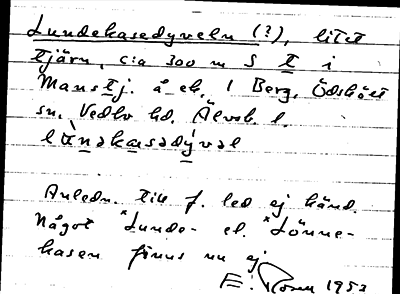 Lundekasedyveln (?), litet
tjärn, c:a 300 m S t i
Manstj. å ek. 1 Berg, Ödskölt
sn, Vedbo hd, Älvsb. l.
lùnəkasədý̀vəl
Anledn. till f. led ej känd.
Något *Lunde- el. *Lönne-
kasen finns nu ej
E. 1953